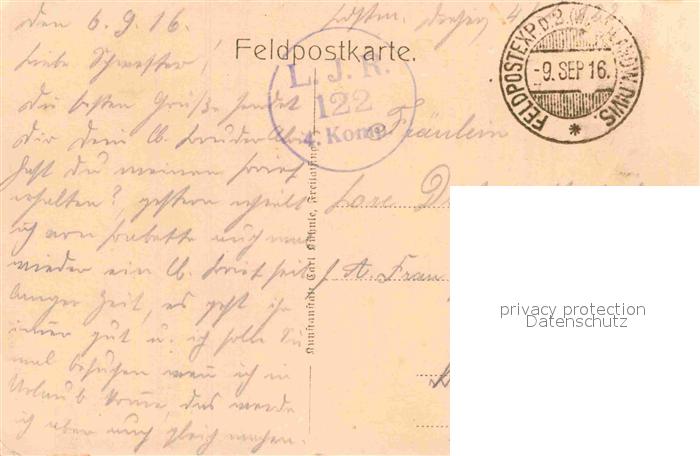 den 6. 9. 16.
Liebe Schwester!
Die besten Grüße sendet
Dir Dein lb. Bruder
Hast Du meinen Brief
erhalten? gestern erhielt
ich von Babette auch mal
wieder ein lb. Brief seit
langer Zeit, es geht ihr
immer gut u. ich solle Sie
mal besuchen wenn ich in
Urlaub komme, das werde
ich aber auch gleich machen.
Feldpostkarte.
L. J. R.
122
4. Komp
FELDPOSTEXP. D. 2. LANDW. DIVIS.
-9. SEP 16.
Kunstanstalt Carl Kühnle, Freilassing
Fräulein
privacy protection
Datenschutz